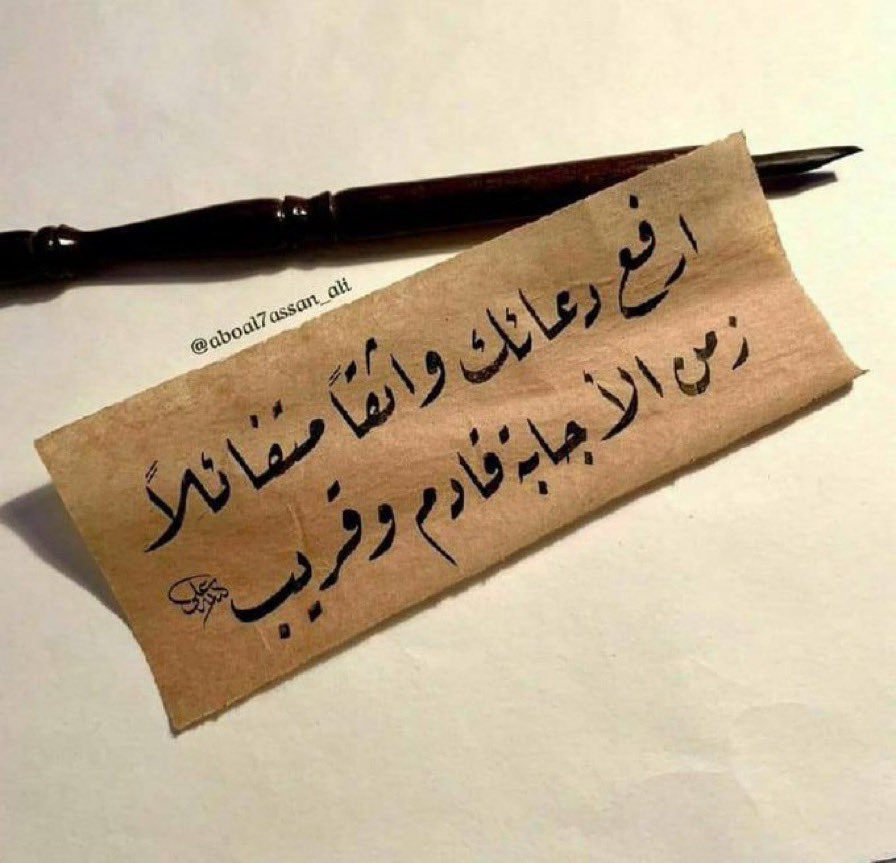 @aboal7assan_ali
ارفع دعائك واثقاً متفائلاً
زمن الأجابة قادم وقريب